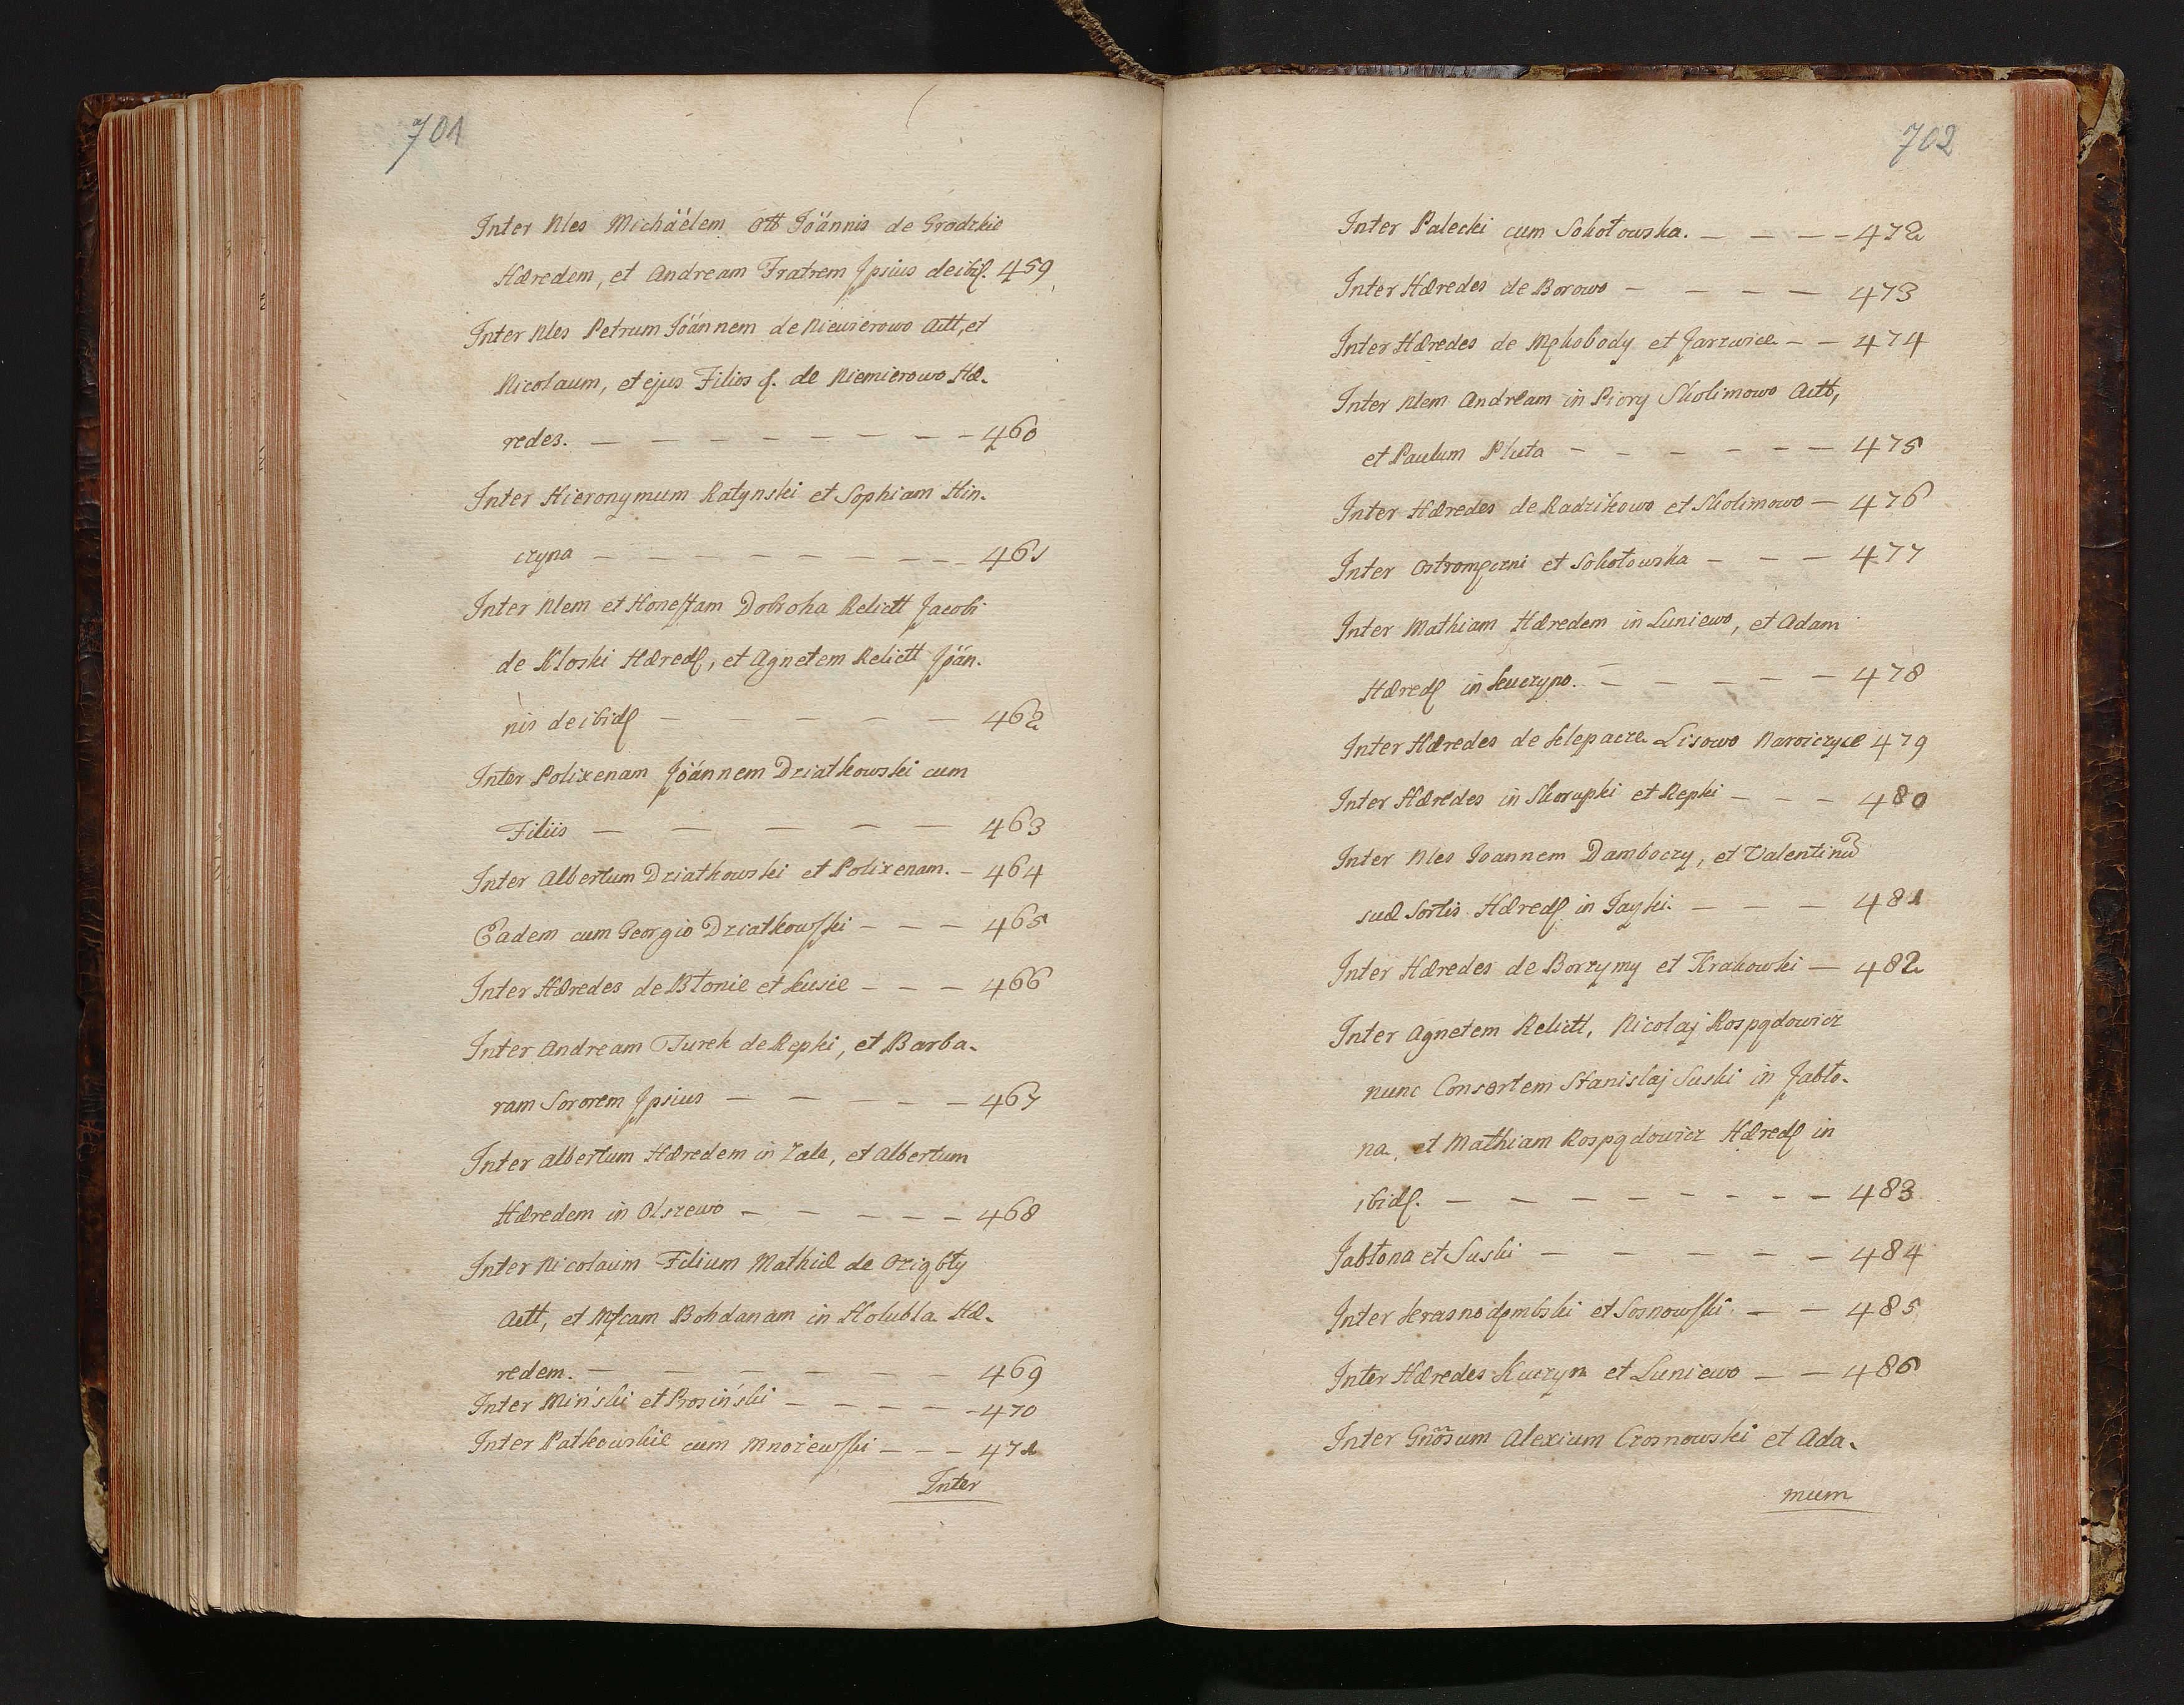 701
Inter Nles Michäélem Ott Jöánnis de Grodzkie
Hæredem, et Andream Fratrem Ipsius deibiꝭ. 459
Inter Nles Petrum Jöánnem de Niewierowo Actt, et
Nicolaum, et ejus Filios ꝭ. de Niemierowo Hæ-
redes. — — — — — — — — 460
Inter Hieronymum Ratynski et Sophiam Hin-
czyna — — — — — — — — 461
Inter Nlem et Honestam Dobroha Relictt Jacobi
de Kloski Hæredꝭ, et Agnetem Relictt Jöán-
nis deibidꝭ — — — — — — 462
Inter Polixenam Jöánnem Dziatkowski cum
Filiis — — — — — 463
Inter Albertum Dziatkowski et Polixenam. – 464
Eadem cum Georgio Dziatkowski – – – 465
Inter Hæredes de Błonie et Kusie – – – 466
Inter Andream Turek de Repki, et Barba-
ram Sororem Ipsius — — — — — 467
Inter Albertum Hæredem in Zale, et Albertum
Hæredem in Olszewo – — — — — 468
Inter Nicolaum Filium Mathiæ de Oziębły
Actt, et Mꝭcam Bohdanam in Holubla Hæ-
redem. — — — — — — — 469
Inter Miński et Prosiński – — — — – 470
Inter Patkowskie cum Mnożewski – – – 471
Inter
702
Inter Palecki cum Sokołowska. – — — – 472
Inter Hæredes de Borowo – — — — 473
Inter Hæredes de Mękobody et Jarzwice – – 474
Inter Nlem Andream in Piory Skolimowo Actt,
et Paulum Pluta – – – – – — 475
Inter Hæredes de Radzikowo et Skolimowo – 476
Inter Ostromęczni et Sokołowska – — — 477
Inter Mathiam Hæredem in Luniewo, et Adam
Hæredꝭ in Kuczyno. – — — — — 478
Inter Hæredes de Klepacze Lisowo Naroiczyce 479
Inter Hæredes in Skorupki et Repki – – – 480
Inter Nles Joannem Damboczy, et Valentinũ
suæ Sortis Hæredꝭ in Jayki. – — — 481
Inter Hæredes de Borzymy et Krakowki — 482
Inter Agnetem Relictt. Nicolaj Rospądowicz
nunc Consortem Stanislaj Suski in Jabło-
na, et Mathiam Rospądowicz Hæredꝭ in
ibidꝭ. – — — — — — — – — 483
Jabłona et Suski — — — — — – 484
Inter Krasnodęmbski et Sosnowski – – 485
Inter Hæredes Kuczyn et Luniewo – – 486
Inter Gnõsum Alexium Czosnowski et Ada-
mum